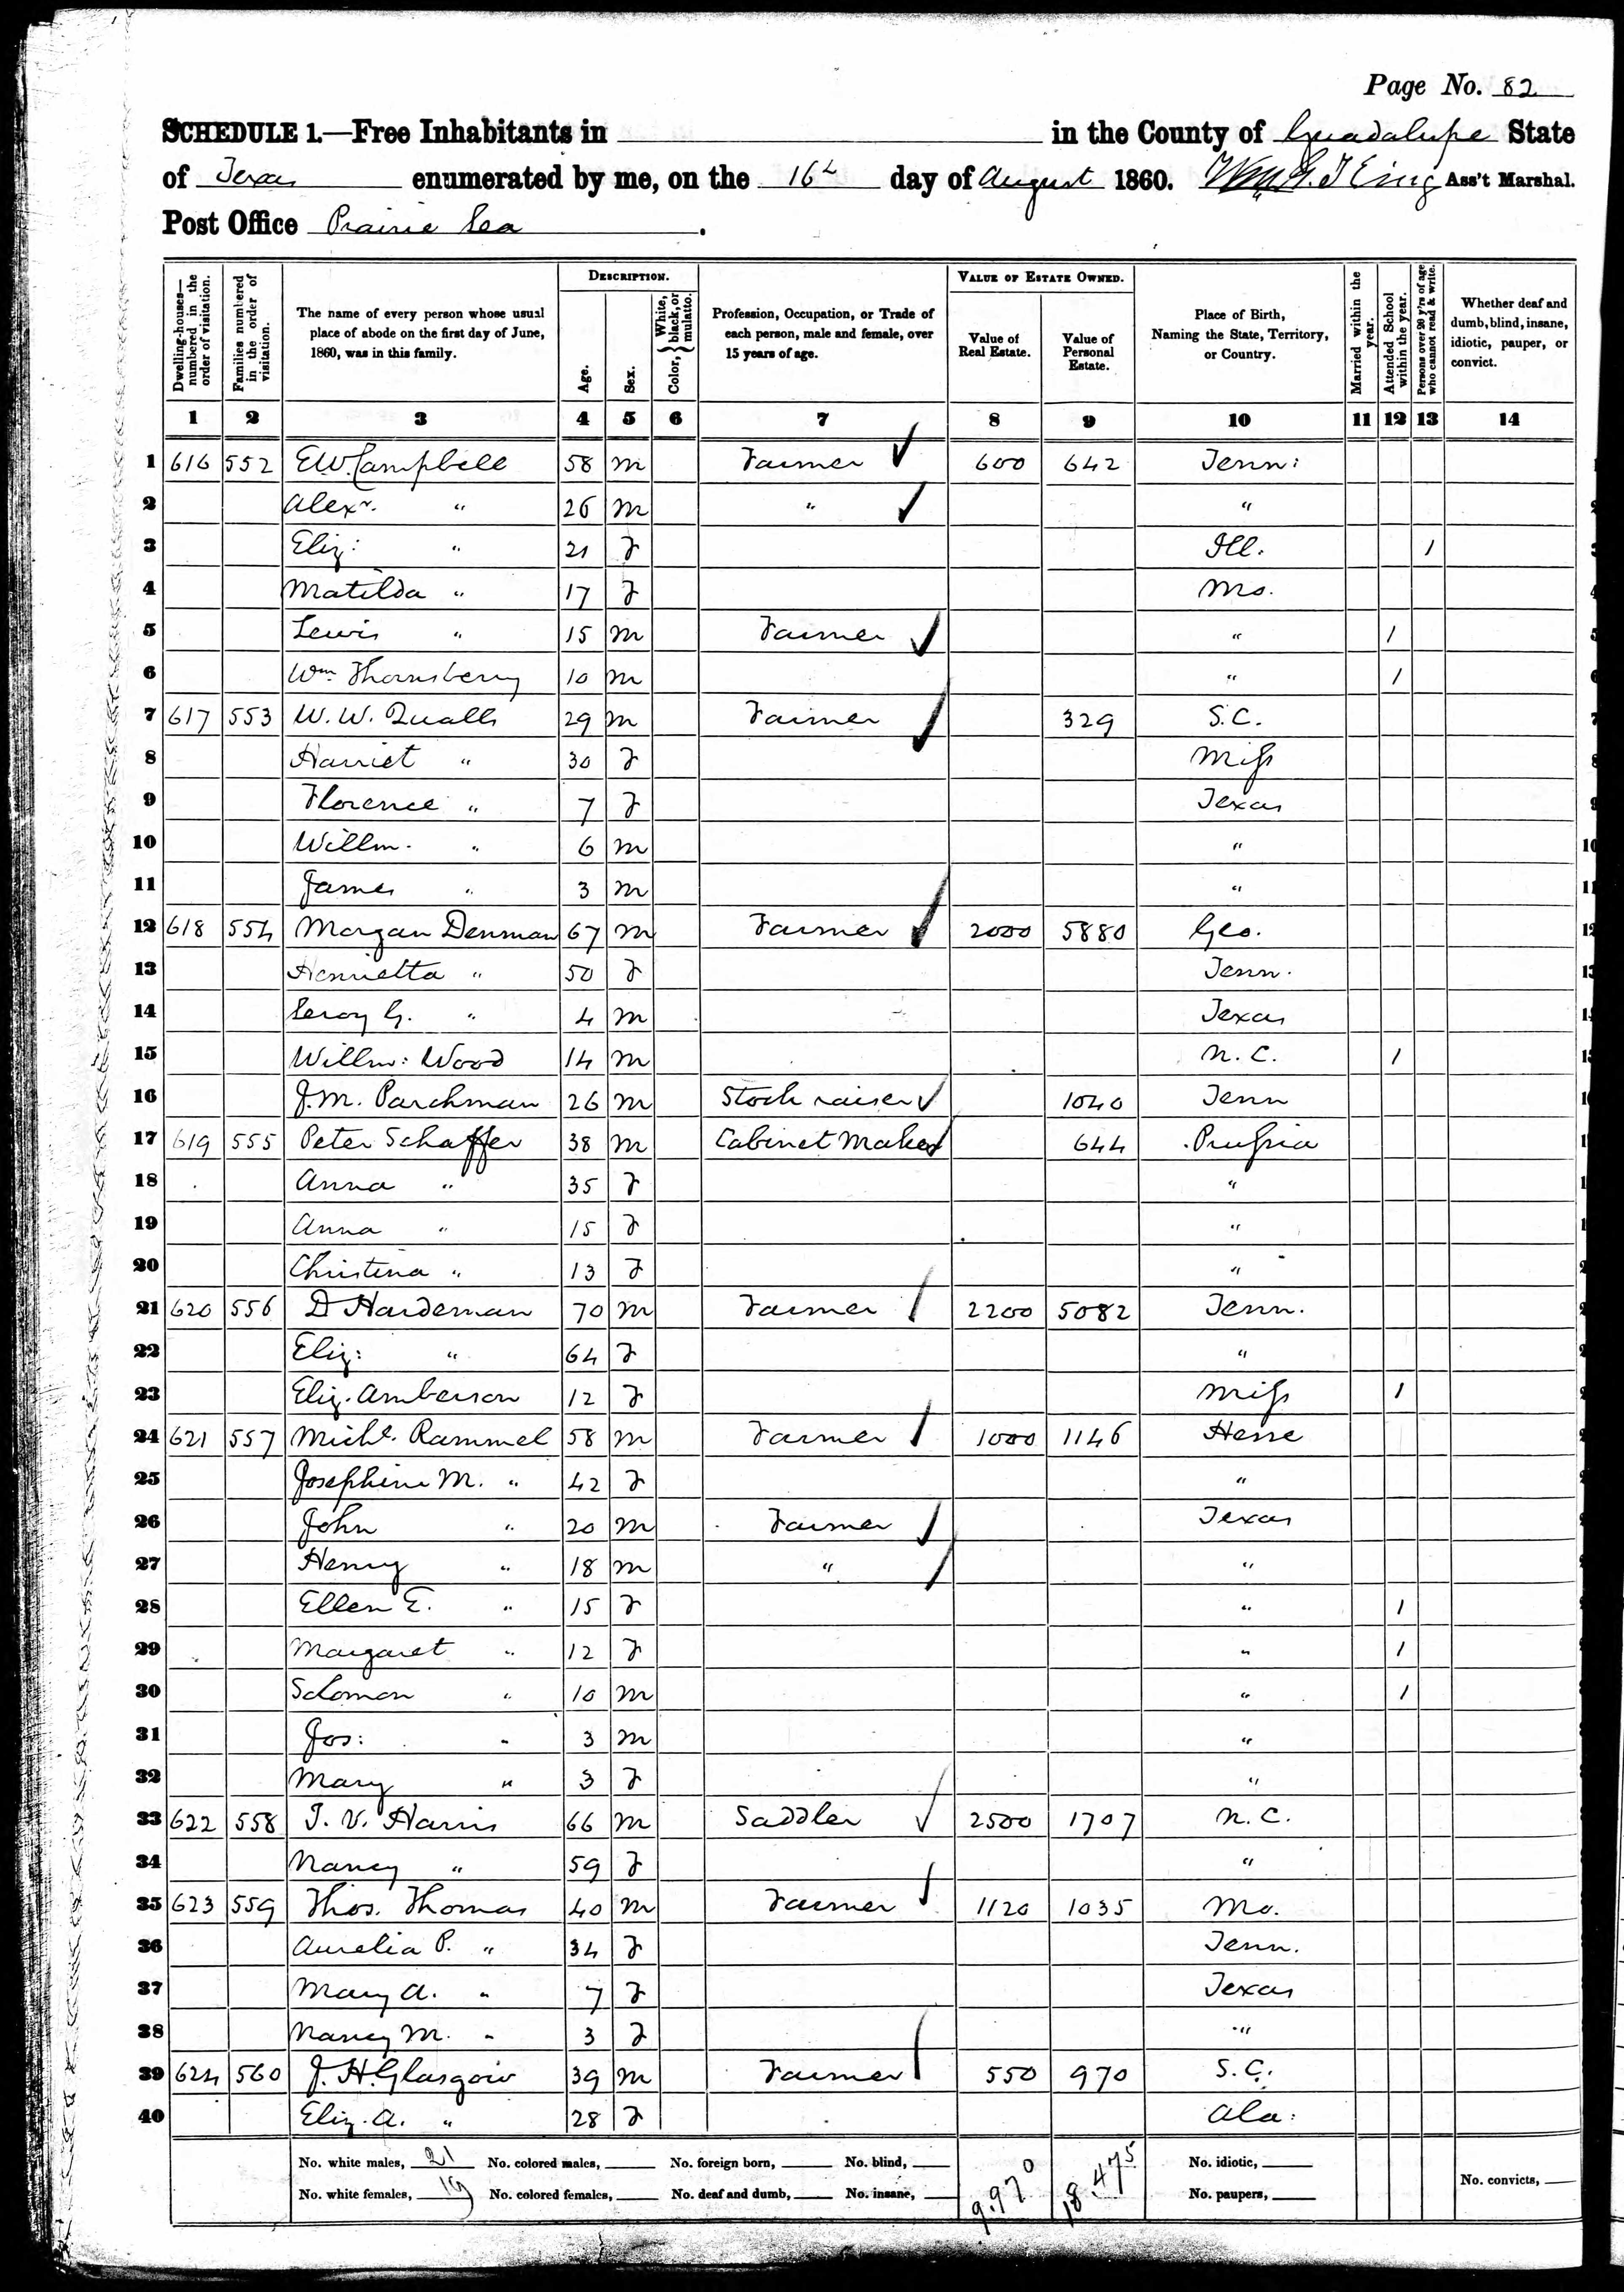 Page No. 82
SCHEDULE 1.—Free Inhabitants in in the County of Guadalupe State
of Texas enumerated by me, on the 16th day of August 1860. Ass't Marshal.
Post Office Prairie Lea.
DESCRIPTION. VALUE OF ESTATE OWNED.
Dwelling-houses—numbered in the order of visitation. Families numbered in the order of visitation. The name of every person whose usual place of abode on the first day of June, 1860, was in this family. Age. Sex. Color, White, black, or mulatto. Profession, Occupation, or Trade of each person, male and female, over 15 years of age. Value of Real Estate. Value of Personal Estate. Place of Birth, Naming the State, Territory, or Country. Married within the year. Attended School within the year. Persons over 20 y'rs of age who cannot read & write. Whether deaf and dumb, blind, insane, idiotic, pauper, or convict.
1 2 3 4 5 6 7 8 9 10 11 12 13 14
1 616 552 E.W. Campbell 58 m Farmer ✓ 600 642 Tenn:
2 Alexr. " 26 m " ✓ "
3 Eliz: " 21 F Ill. 1
4 Matilda " 17 F Mo.
5 Lewis " 15 m Farmer ✓ " 1
6 Wm Thornsberry 10 m " 1
7 617 553 W. W. Qualls 29 m Farmer ✓ 329 S.C.
8 Harriet " 30 F Miss
9 Florence " 7 F Texas
10 Willm. " 6 m "
11 James " 3 m "
12 618 554 Morgan Denman 67 m Farmer ✓ 2000 5880 Geo.
13 Henrietta " 50 F Tenn.
14 Leroy G. " 4 m Texas
15 Willm: Wood 14 m N.C. 1
16 J.M. Parchman 26 m Stock raiser ✓ 1040 Tenn
17 619 555 Peter Schaffer 38 m Cabinet Maker ✓ 644 Prussia
18 Anna " 35 F "
19 Anna " 15 F "
20 Christina " 13 F "
21 620 556 D Hardeman 70 m Farmer ✓ 2200 5082 Tenn.
22 Eliz: " 64 F "
23 Eliz. Amberson 12 F Miss 1
24 621 557 Michl. Rammel 58 m Farmer ✓ 1000 1146 Hesse
25 Josephine M. " 42 F "
26 John " 20 m Farmer ✓ Texas
27 Henry " 18 m " ✓ "
28 Ellen E. " 15 F " 1
29 Margaret " 12 F " 1
30 Solomon " 10 m " 1
31 Jos: " 3 m "
32 Mary " 3 F "
33 622 558 I. V. Harris 66 m Saddler ✓ 2500 1707 N.C.
34 Nancy " 59 F "
35 623 559 Thos. Thomas 40 m Farmer ✓ 1120 1035 Mo.
36 Aurelia P. " 34 F Tenn.
37 Mary A. " 7 F Texas
38 Nancy M. " 3 F "
39 624 560 J. H. Glasgow 39 m Farmer ✓ 550 970 S.C.
40 Eliz. A. " 28 F Ala:
No. white males, 21 No. colored males, No. foreign born, No. blind, 9.970 18.475 No. idiotic,
No. white females, 19 No. colored females, No. deaf and dumb, No. insane, No. paupers, No. convicts,